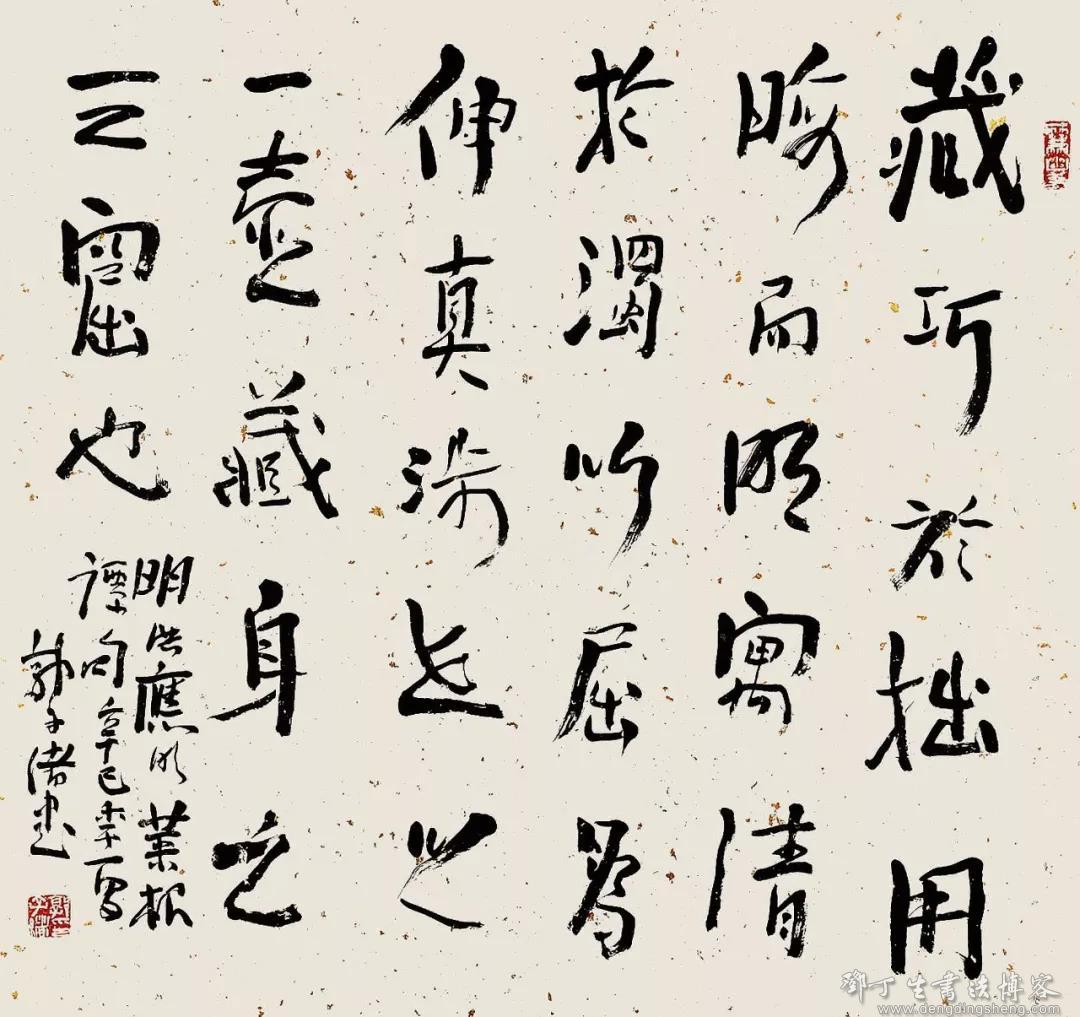 藏巧於拙用
晦而明寓清
於濁以屈為
伸真涉世之
一壺藏身之
三窟也
明洪應明菜根
譚句辛巳
郭子緒書
鄧丁生書法博客
www.dengdingsheng.com